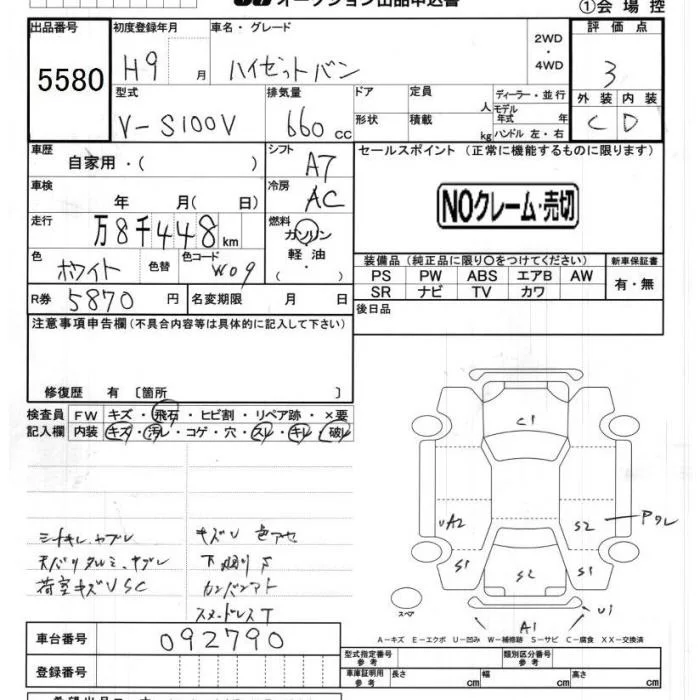 オークション出品申込書
①会場控
出品番号
5580
初度登録年月
H9 月
車名・グレード
ハイゼットバン
2WD
・
4WD
評価点
3
外装 内装
C D
型式
V-S100V
排気量
660 cc
ドア
形状
定員 人
積載 kg
ディーラー・並行
モデル年式 年
ハンドル 左・右
車歴
自家用・( )
シフト
A7
セールスポイント (正常に機能するものに限ります)
NOクレーム・売切
車検
年 月 ( 日)
冷房
AC
走行
万8千448km
燃料
ガソリン
軽油
・( )
色
ホワイト
色替
色コード
W09
装備品(純正品に限り○をつけてください)
PS PW ABS エアB AW
SR ナビ TV カワ
新車保証書
有・無
R券 5870 円
名変期限 月 日
後日品
注意事項申告欄(不具合内容等は具体的に記入して下さい)
修復歴 有 〔箇所 〕
検査員記入欄
FW キズ・飛石・ヒビ割・リペア跡・×要
内装 キズ・汚レ・コゲ・穴・スレ・キレ・破レ
シートキレ、ヤブレ
天バリタルミ、ヤブレ
荷室キズUSC
キズU 色アセ
下廻りS
カンバンアト
スタッドレスT
C1
UA2
S2
アワレ
S1
S2
S1
A1
U1
スペア
A-キズ E-エクボ U-凹み W-補修跡 S-サビ C-腐食 XX-交換済
車台番号
092790
登録番号
型式指定番号
参考
類別区分番号
参考
車庫証明用
参考
長さ cm
幅 cm
高さ cm